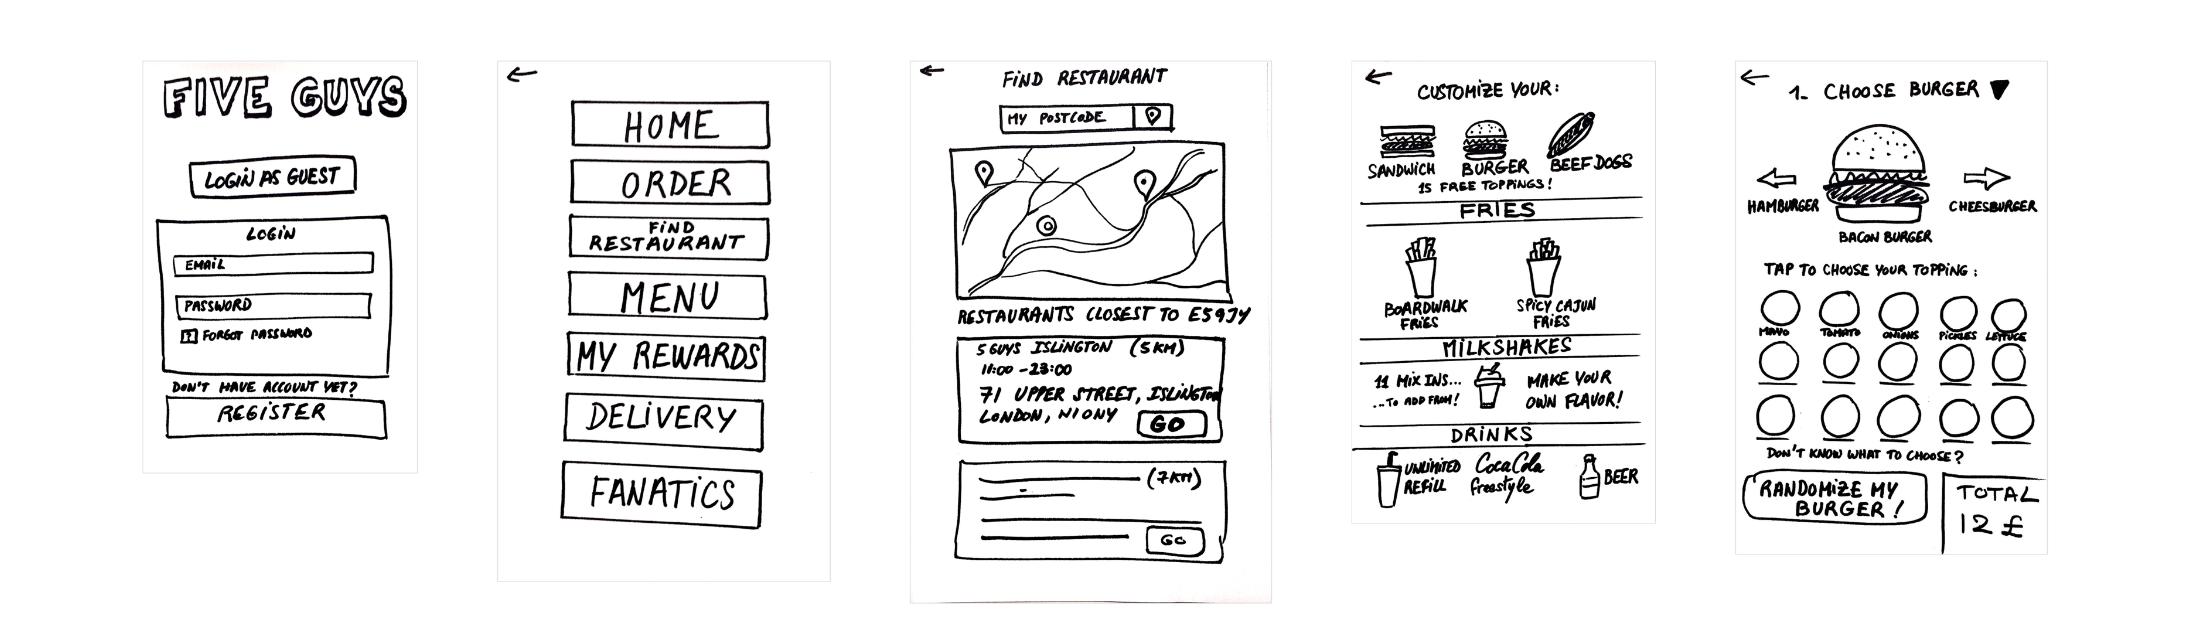 FIVE GUYS
LOGIN AS GUEST
LOGIN
EMAIL
PASSWORD
? FORGOT PASSWORD
DON'T HAVE ACCOUNT YET?
REGISTER
HOME
ORDER
FIND
RESTAURANT
MENU
MY REWARDS
DELIVERY
FANATICS
FIND RESTAURANT
MY POSTCODE
RESTAURANTS CLOSEST TO E59JY
5 GUYS ISLINGTON (5KM)
11:00 - 23:00
71 UPPER STREET, ISLINGTON
LONDON, N1 0NY
GO
(7KM)
GO
CUSTOMIZE YOUR:
SANDWICH
BURGER
BEEF DOGS
15 FREE TOPPINGS!
FRIES
BOARDWALK
FRIES
SPICY CAJUN
FRIES
MILKSHAKES
11 MIX INS...
...TO ADD FROM!
MAKE YOUR
OWN FLAVOR!
DRINKS
UNLIMITED
REFILL
CocaCola
freestyle
BEER
1- CHOOSE BURGER
HAMBURGER
CHEESBURGER
BACON BURGER
TAP TO CHOOSE YOUR TOPPING:
MAYO
TOMATO
ONIONS
PICKLES
LETTUCE
DON'T KNOW WHAT TO CHOOSE?
RANDOMIZE MY
BURGER!
TOTAL
12 £